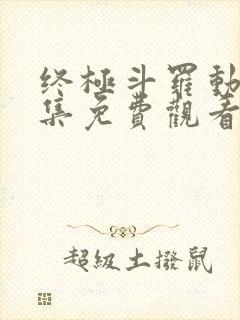 终極斗羅動
集免費觀看
超級土撥鼠